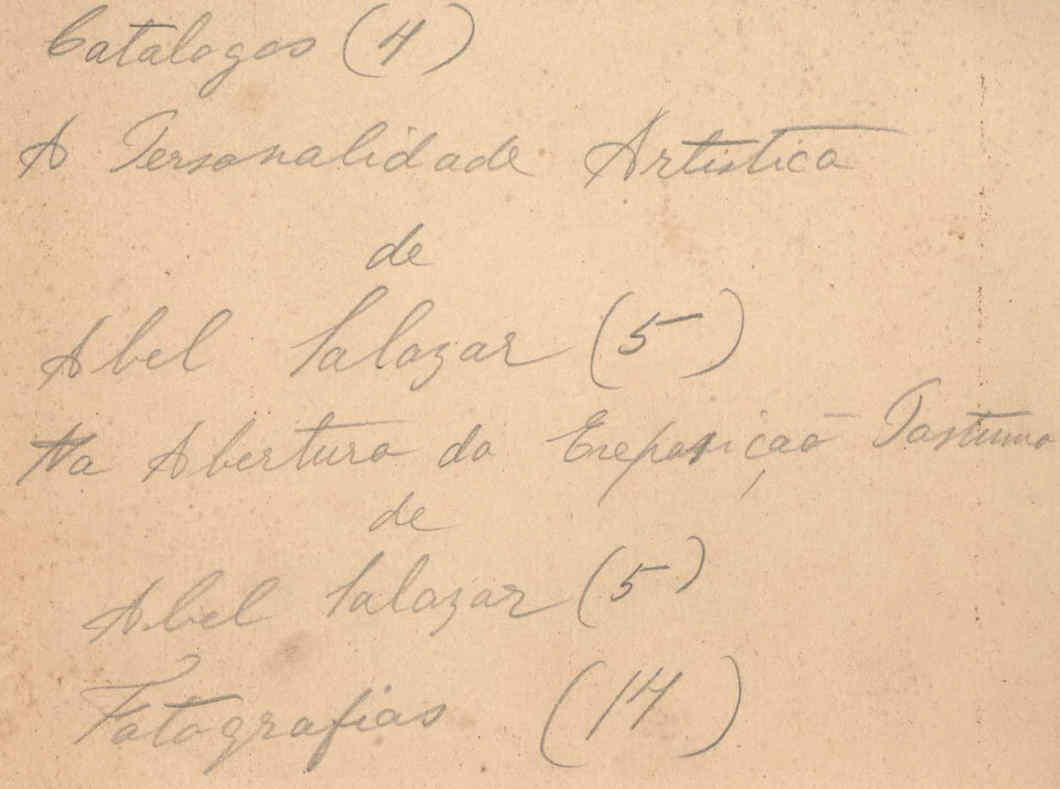 Catalogos (4)
A Personalidade Artistica
de
Abel Salazar (5)
Na Abertura da Exposição Postuma
de
Abel Salazar (5)
Fotografias (14)